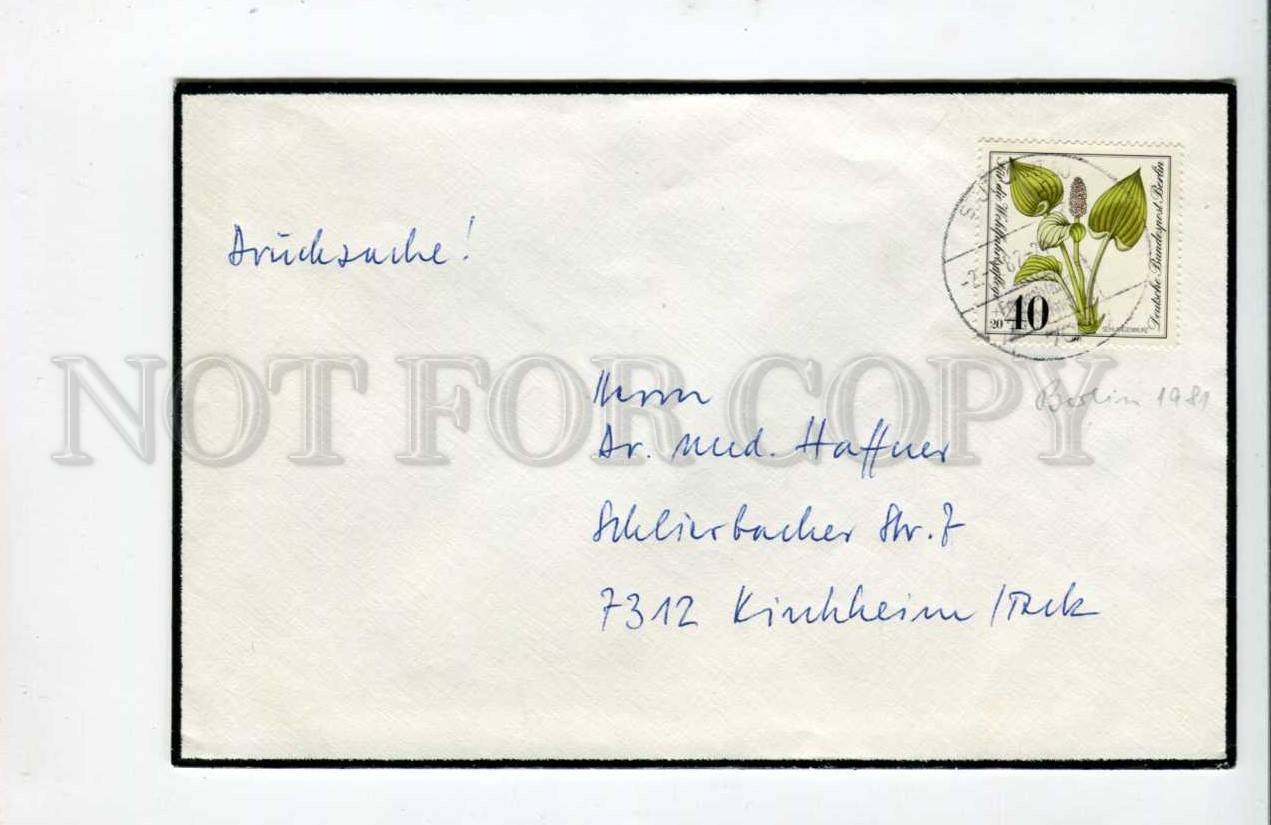 Drucksache!
Für die Wohlfahrtspflege
Deutsche Bundespost Berlin
40
20
NOT FOR COPY
Berlin 1981
Herrn
Dr. med. Haffner
Schlierbacher Str. 7
7312 Kirchheim/Teck